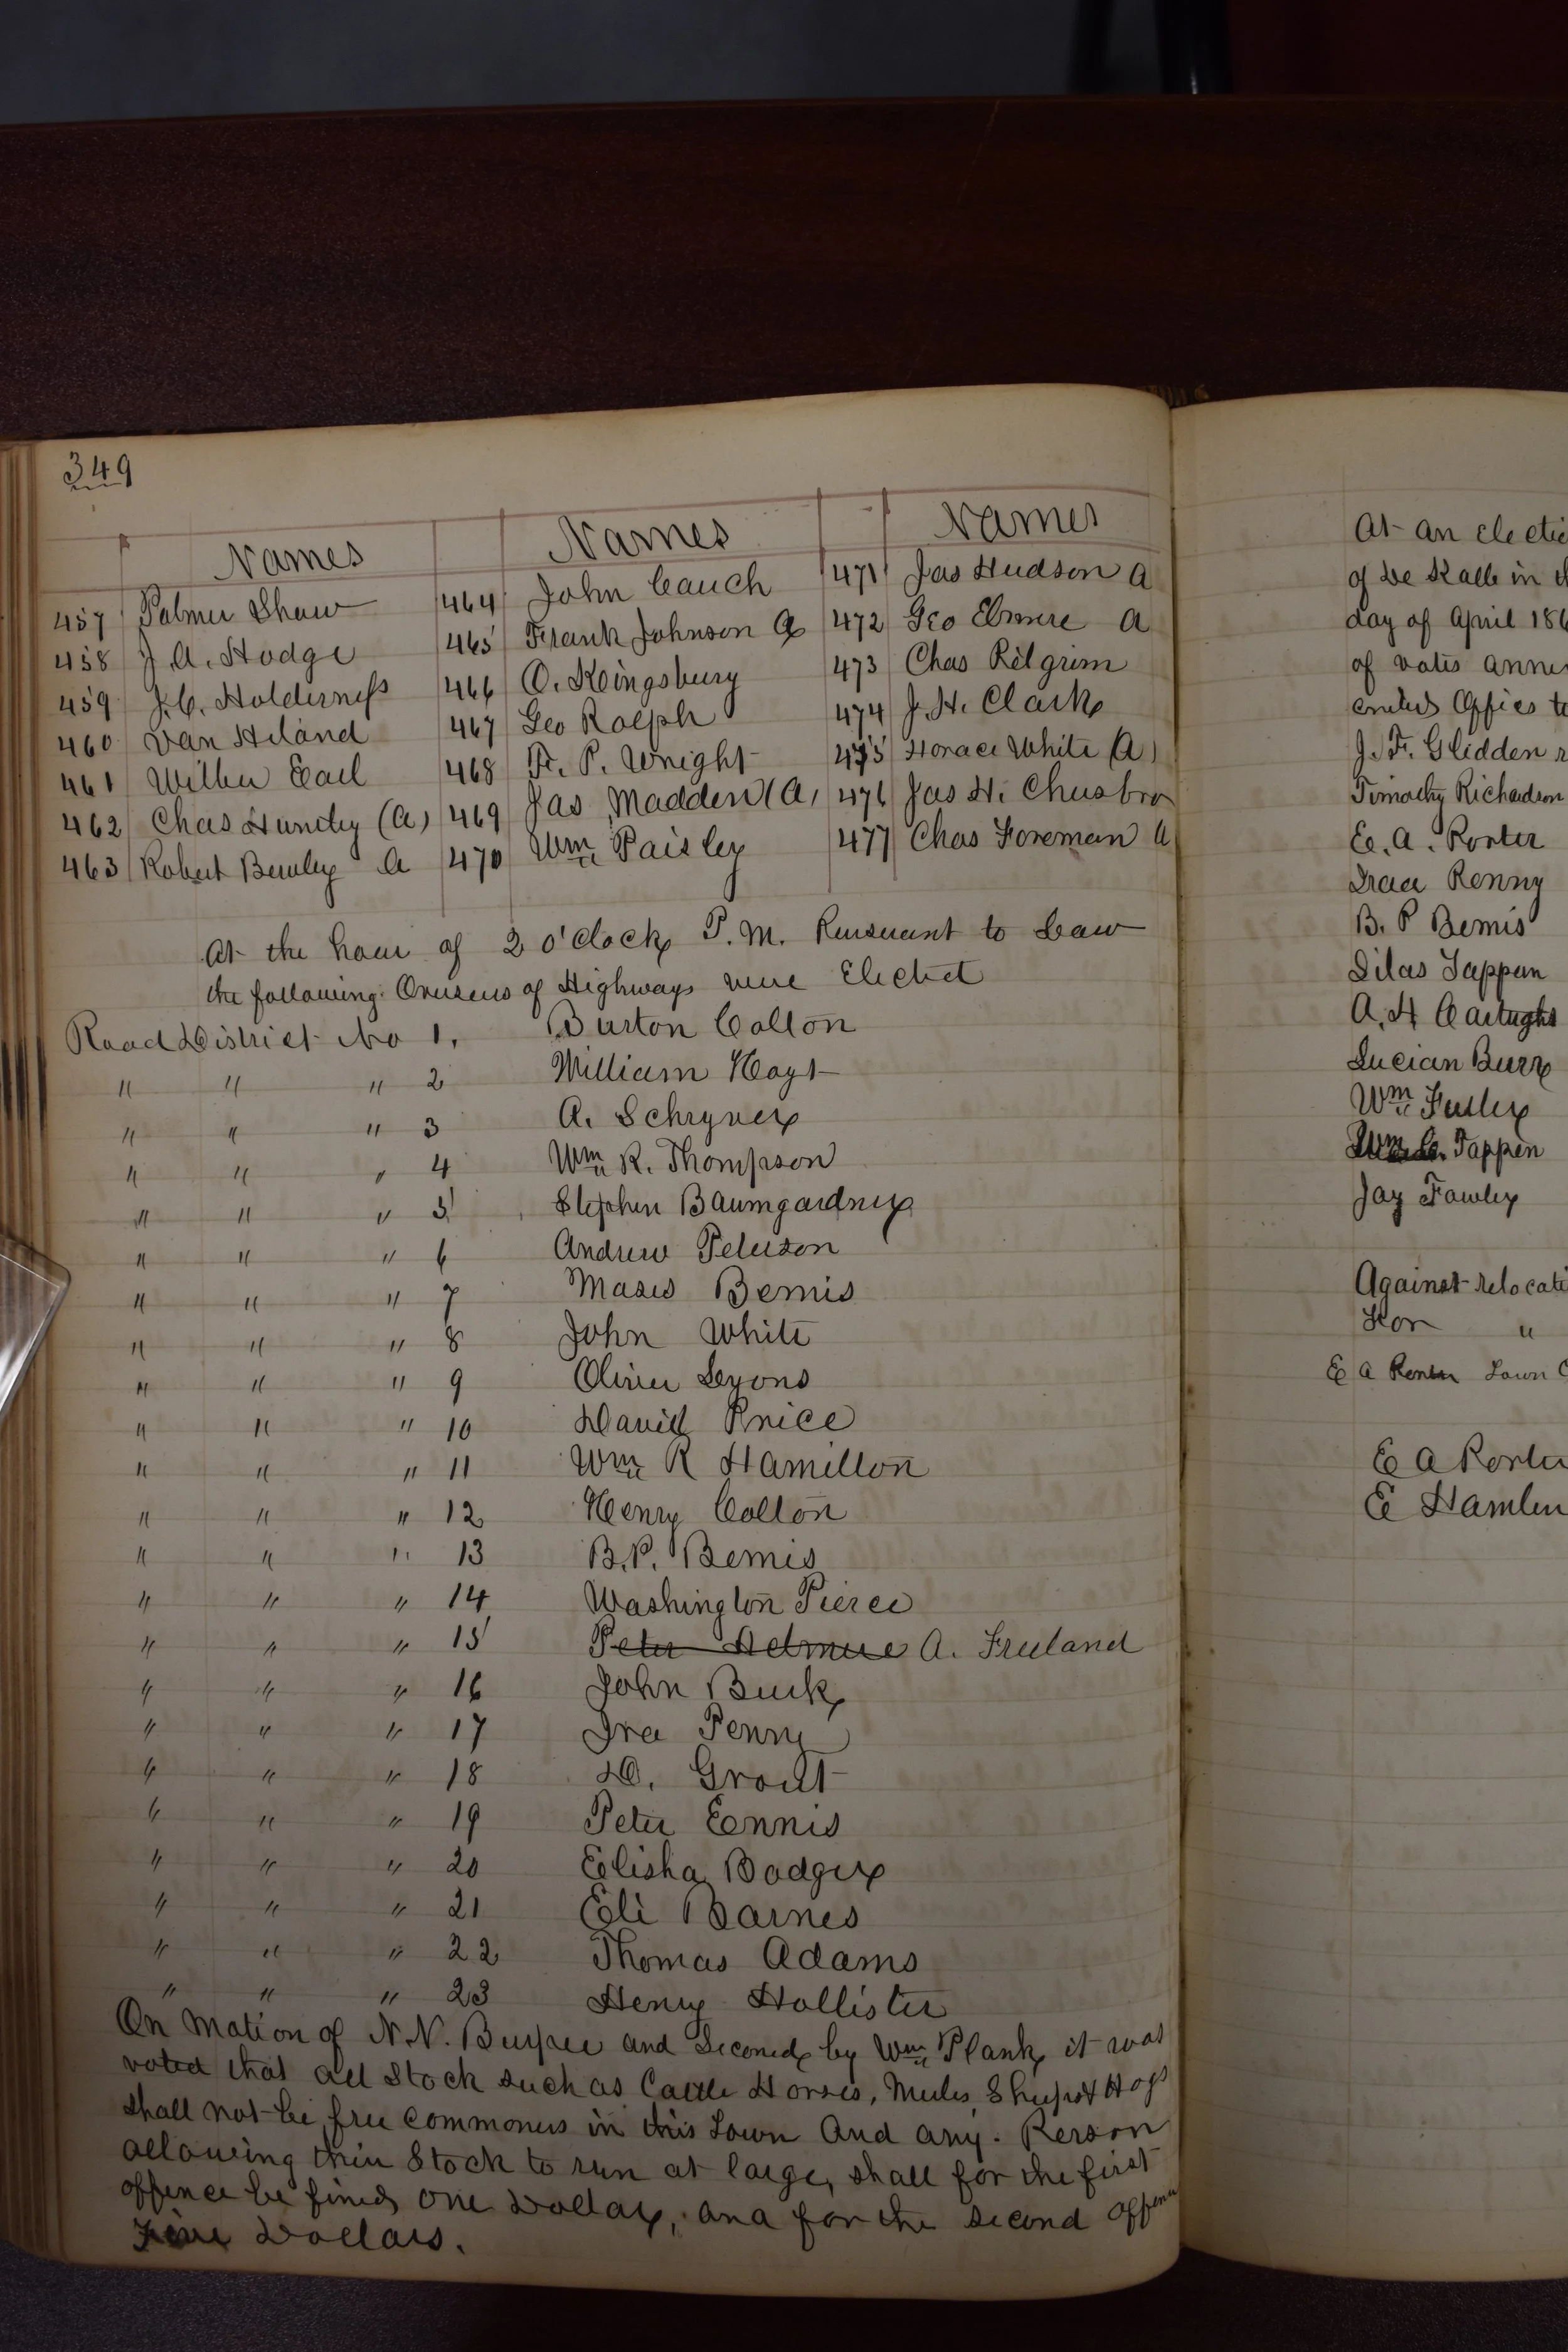 349
Names Names Names
457 Palmer Shaw 464 John Cauch 471 Jas Hudson A
458 J. A. Hodge 465 Frank Johnson A 472 Geo Elmere A
459 J. C. Holderness 466 O. Kingsbury 473 Chas Pilgrim
460 Van Hiland 467 Geo Rolph 474 J. H. Clark
461 Wilber Earl 468 F. P. Wright 475 Horace White (A)
462 Chas Huntly (A) 469 Jas Madden (A) 476 Jas H. Chusbro
463 Robert Bewley A 470 Wm Paisley 477 Chas Foreman A
At the hour of 2 o'clock P.M. Pursuant to Law
the following Overseers of Highways were Elected
Road District No 1. Burton Colton
" " " 2 William Hoyt
" " " 3 A. Schryver
" " " 4 Wm R. Thompson
" " " 5 Stephen Baumgardner
" " " 6 Andrew Peterson
" " " 7 Moses Bemis
" " " 8 John White
" " " 9 Oliver Lyons
" " " 10 David Price
" " " 11 Wm R Hamilton
" " " 12 Henry Colton
" " " 13 B. P. Bemis
" " " 14 Washington Pierce
" " " 15 Peter Aelmere A. Freeland
" " " 16 John Burk
" " " 17 Ira Penny
" " " 18 D. Grout
" " " 19 Peter Ennis
" " " 20 Elisha Badger
" " " 21 Eli Barnes
" " " 22 Thomas Adams
" " " 23 Henry Hollister
On Motion of N. N. Burpee and Seconed by Wm Plank it was
voted that all Stock such as Cattle Horses, Mules, Sheep & Hogs
shall not be free commoners in this Town And any Person
allowing their Stock to run at large, shall for the first
offence be fined One Dollar, and for the second offence
Five Dollars.
At an Electi
of De Kalb in th
day of April 186
of votes anne
J. F. Glidden r
Timothy Richardson
E. A. Porter
Iraa Penny
B. P Bemis
Silas Tappen
Lucian Burr
Wm Fuller
Wm C. Tappen
Jay Fowler
Against relocati
For "
E A Porter Town C
E A Porter
E Hamlin